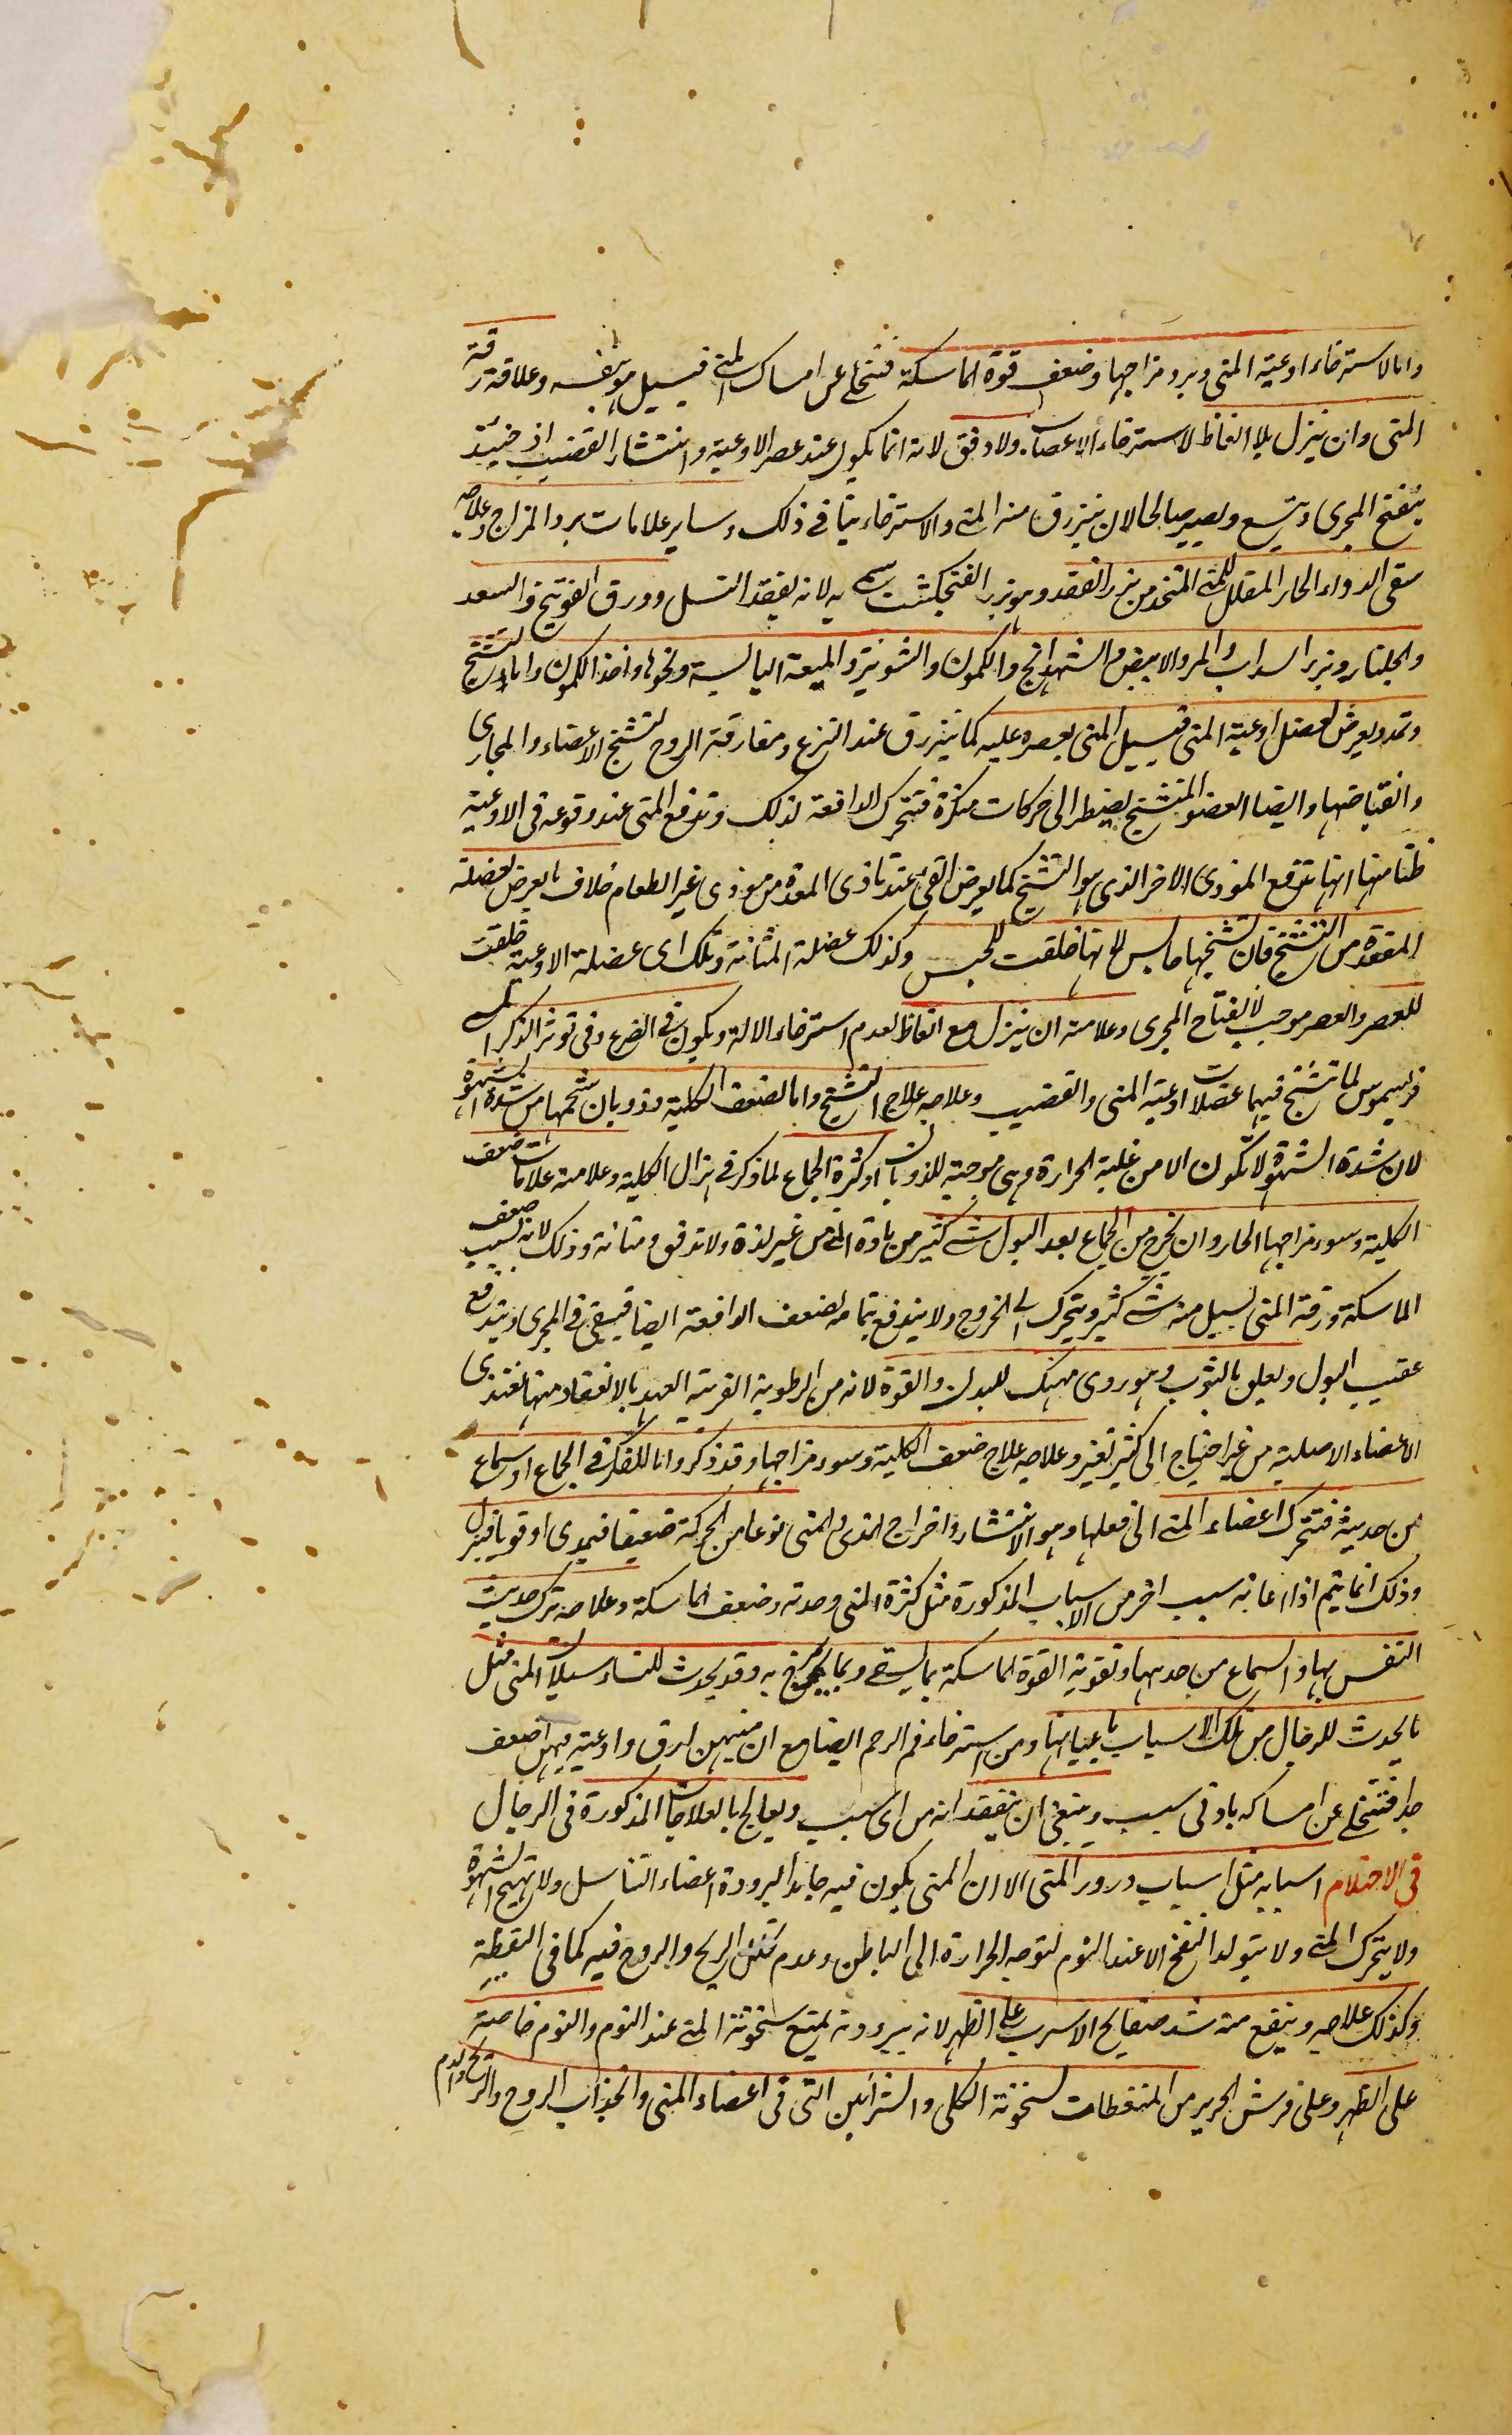 واما لاسترخاء اوعية المنى وبرد مزاجها وضعف قوة الماسكة فتخلى عن امساك المنى فيسيل بنفسه وعلامته رقة
المنى وان ينزل بلا انعاظ لاسترخاء الاعصاب ولا دفق لانه انما يكون عند عصر الاوعية وانتشار القضيب اذ حينئذ
ينفتح المجرى ويتسع ويصير صالحا لان ينزرق منه المنى والاسترخاء ينافى ذلك وساير علامات برد المزاج وعلاجه
سقى الدواء الحار المقلل للمنى المتخذ من بزر الفقد وهو بزر الفنجنكشت سمى به لانه يفقد النسل وورق الفوتنج والسعد
والجلنار وبزر السداب والمر والابيض والشهدانج والكمون والشونيز والميعة اليابسة ونحوها واخذ الكمون واما لتشنج
وتمدد يعرض لعضل اوعية المنى فيسيل المنى بعصره عليه كما ينزرق عند النزع ومفارقة الروح لتشنج الاعضاء والمجارى
وانقباضها وايضا العضو المتشنج يضطر الى حركات منكرة فتتحرك الدافعة لذلك وتدفع المنى عند وقوعه فى الاوعية
ظنا منها انها تدفع الموذى الاخر الذى هو التشنج كما يعرض القى عند تاذى المعدة من موذى غير الطعام خلاف ما يعرض لعضلة
المقعدة من التشنج فان تشنجها حابس لانها خلقت للحبس وكذلك عضلة المثانة وتلك اى عضلة الاوعية خلقت
للعصر والعصر موجب لانفتاح المجرى وعلامته ان ينزل مع انعاظ لعدم استرخاء الالة ويكون فى الصرع وفى توتر الذكر اى
فريسموس لما تشنج فيهما عضلات اوعية المنى والقضيب وعلاجه علاج التشنج واما لضعف الكلية وذوبان شحمها من شدة الشهوة
لان شدة الشهوة لا تكون الا من غلبة الحرارة وهى موجبة للذوبان او كثرة الجماع لما ذكر فى هزال الكلية وعلامته علامات ضعف
الكلية وسوء مزاجها الحار وان يخرج من الجماع بعد البول شى كثير من مادة المنى من غير لذة ولا تدفق ومتانة وذلك لانه بسبب ضعف
الماسكة ورقة المنى يسيل منه شى كثير ويتحرك الى الخروج ولا يندفع بتمامه لضعف الدافعة ايضا فيبقى فى المجرى ويندفع
عقيب البول ويعلق بالثوب وهو ردى منهك للبدن والقوة لانه من الرطوبة القريبة العهد بالانعقاد منها تغتذى
الاعضاء الاصلية من غير احتياج الى كثير تغير وعلاجه علاج ضعف الكلية وسوء مزاجها وقد ذكر واما للفكر فى الجماع او سماع
من حديثه فتتحرك اعضاء المنى الى فعلها وهو الانتشار واخراج المذى والمنى نوعا من الحركة ضعيفا فيمذى او قويا فينزل
وذلك انما يتم اذا اعانه سبب اخر من الاسباب المذكورة مثل كثرة المنى وحدته وضعف الماسكة وعلاجه ترك حديث
النفس بها والسماع من حديثها وتقوية القوة الماسكة بما يسقى وبما يمرخ به وقد يحدث للنساء سيلان المنى مثل
ما يحدث للرجال من تلك الاسباب باعيانها ومن استرخاء فم الرحم ايضا مع ان منيهن ارق واوعية منيهن اضعف
جدا فتتخلى عن امساكه بادنى سبب وينبغى ان يتفقد انه من اى سبب ويعالج بالعلاجات المذكورة فى الرجال
فى الاحتلام اسبابه مثل اسباب درور المنى الا ان المنى يكون فيه جامدا لبرودة اعضاء التناسل ولا تهيج الشهوة
ولا يتحرك المنى ولا يتولد النفخ الا عند النوم لتوجه الحرارة الى الباطن وعدم تحلل الريح والروح فيه كما فى اليقظة
وكذلك علاجه وينفع منه شد صفايح الاسرب على الظهر لانه ببرودته يمنع سخونة المنى عند النوم والنوم خاصة
على الظهر وعلى فرش الحرير من المنعظات لسخونة الكلى والشرائين التى فى اعضاء المنى وانجذاب الروح والريح والدم